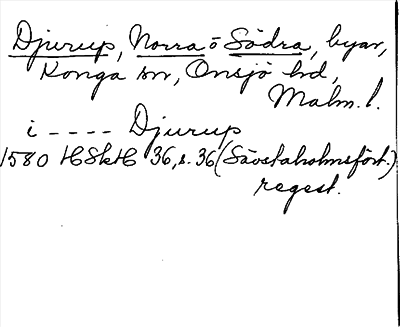 Djurup, Norra o Södra, byar,
Konga sn, Onsjö hd,
Malm. l.
i ---- Djurup
1580 HSkH 36, s. 36 (Sävstaholmsfört.)
regest.